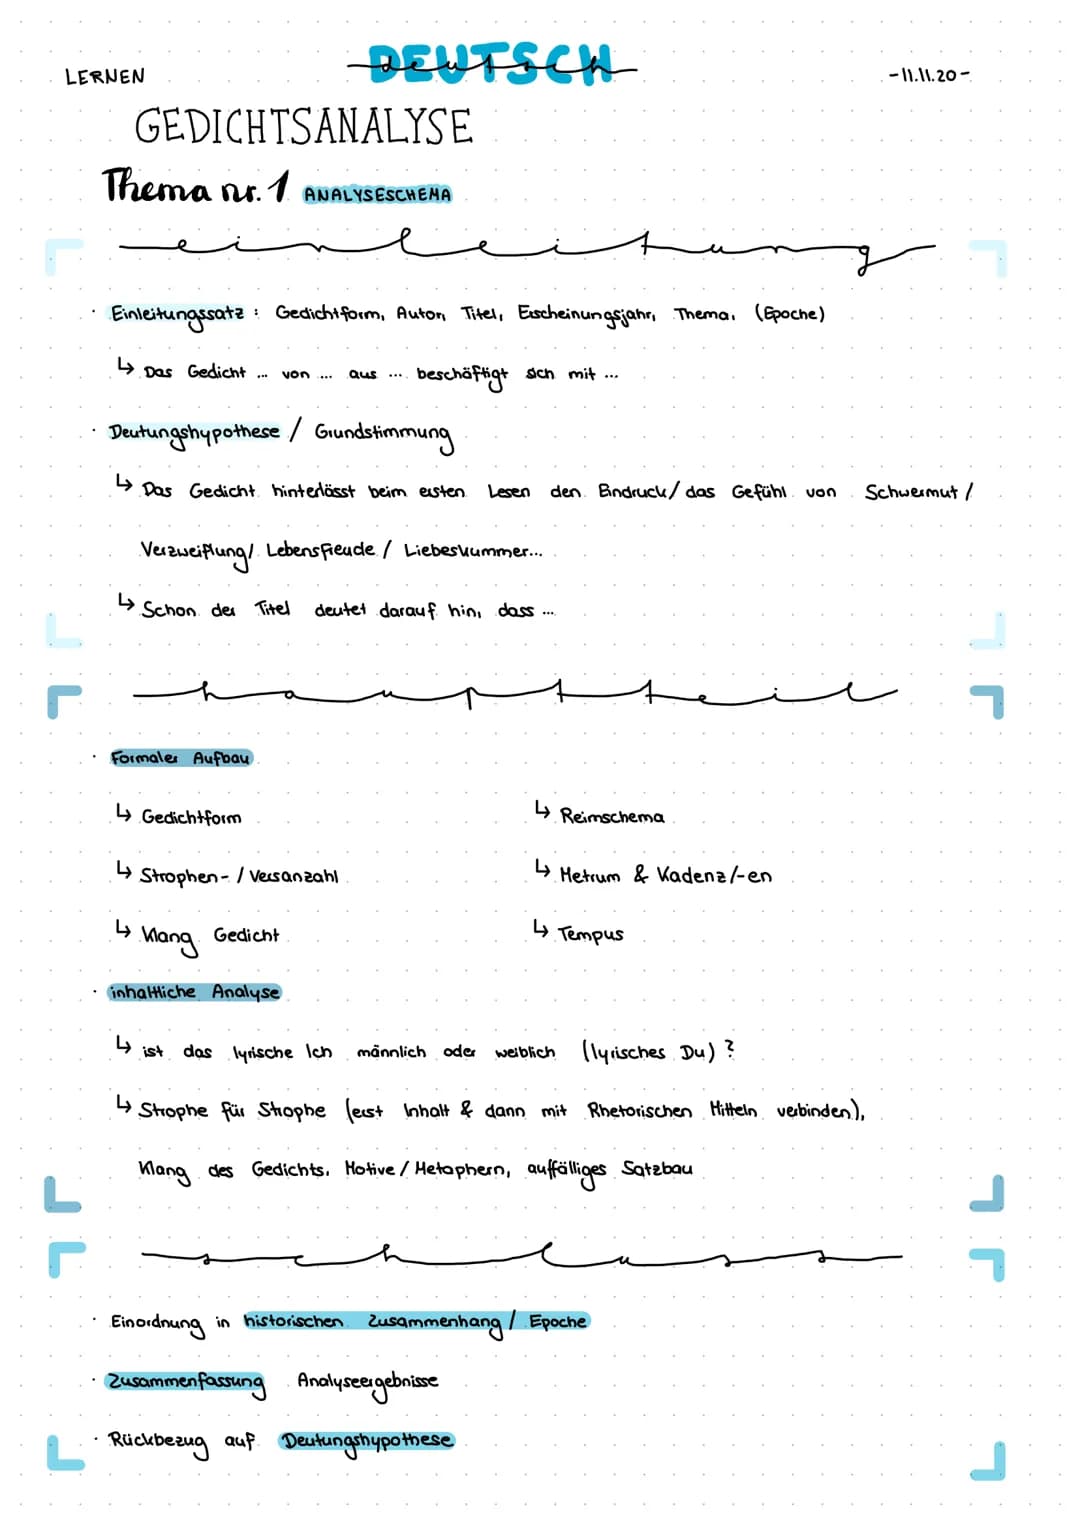 LERNEN
DEUTSCH
deutsch
-11.11.20-
GEDICHTSANALYSE
Thema nr. 1 ANALYSESCHEMA
einleitung
· Einleitungssatz : Gedichtform, Autor, Titel, Erscheinungsjahr, Thema, (Epoche)
↳ Das Gedicht ... von ... aus ... beschäftigt sich mit ...
· Deutungshypothese / Grundstimmung
↳ Das Gedicht hinterlässt beim ersten Lesen den Eindruck/ das Gefühl von Schwermut /
Verzweiflung/ Lebensfreude / Liebeskummer...
↳ Schon der Titel deutet darauf hin, dass ...
hauptteil
· Formaler Aufbau
↳ Gedichtform
↳ Reimschema
↳ Strophen- / Versanzahl
↳ Metrum & Kadenz/-en
↳ Klang Gedicht
↳ Tempus
· inhaltliche Analyse
↳ ist das lyrische Ich männlich oder weiblich (lyrisches Du) ?
↳ Strophe für Strophe (erst Inhalt & dann mit Rhetorischen Mitteln verbinden),
Klang des Gedichts, Motive / Metaphern, auffälliges Satzbau
schluss
· Einordnung in historischen Zusammenhang / Epoche
· Zusammenfassung Analyseergebnisse
· Rückbezug auf Deutungshypothese